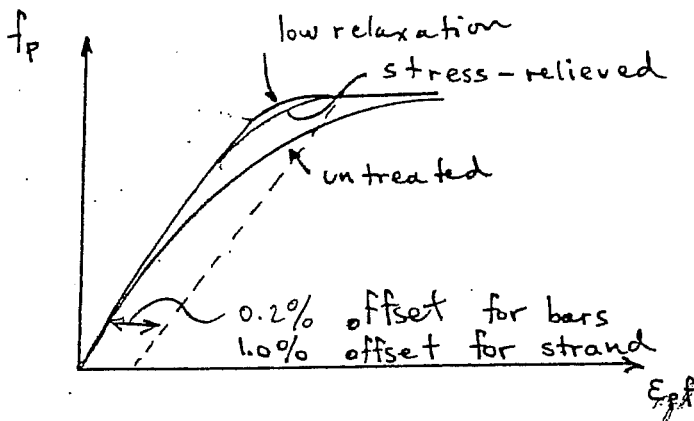 fp
low relaxation
stress-relieved
untreated
0.2% offset for bars
1.0% offset for strand
εpf